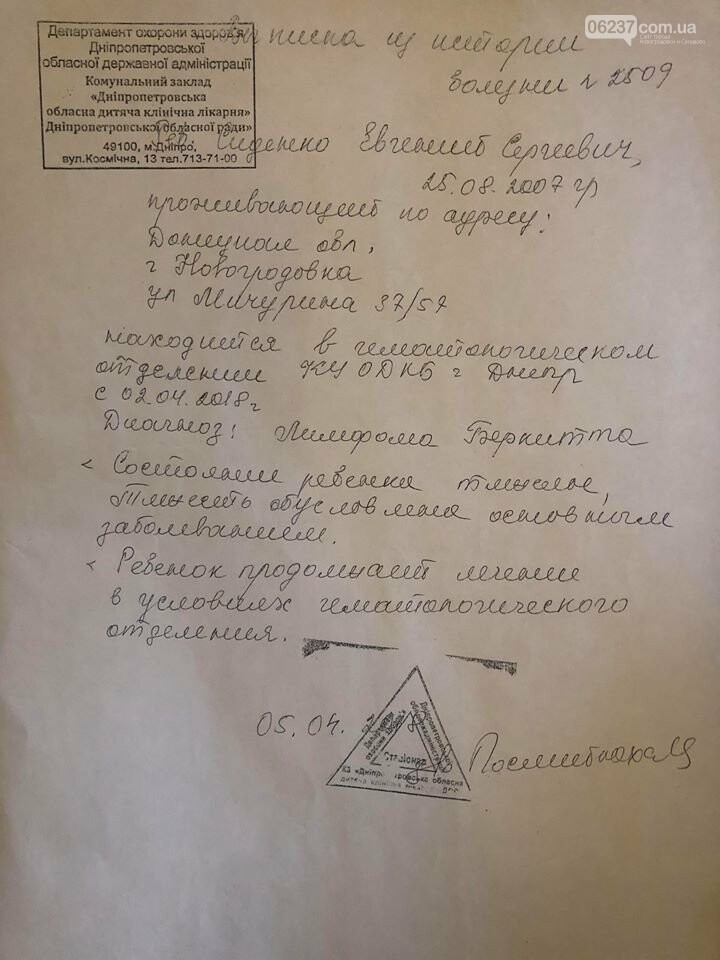 06237.com.ua
Департамент охорони здоров'я
Дніпропетровської
обласної державної адміністрації
Комунальний заклад
«Дніпропетровська
обласна дитяча клінічна лікарня»
Дніпропетровської обласної ради»
49100, м.Дніпро,
вул.Космічна, 13 тел.713-71-00
Выписка из истории
болезни № 2509
Евгений Сергеевич,
25.08.2007 гр
проживающий по адресу:
Донецкая обл,
г Новогродовка
ул Мичурина 37/57
находится в гематологическом
отделении КУ ОДКБ г Днепр
с 02.04.2018г
Диагноз: Лимфома Беркитта
Состояние ребенка тяжелое,
Тяжесть обусловлена основным
заболеванием.
Ребенок продолжает лечение
в условиях гематологического
отделения.
05.04.
Стаціонар
КЗ «Дніпропетровська обласна